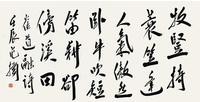 牧豎持
蓑笠逢
人氣傲然
卧牛吹短
笛耕卻
傍溪田
崔道融詩
壬辰